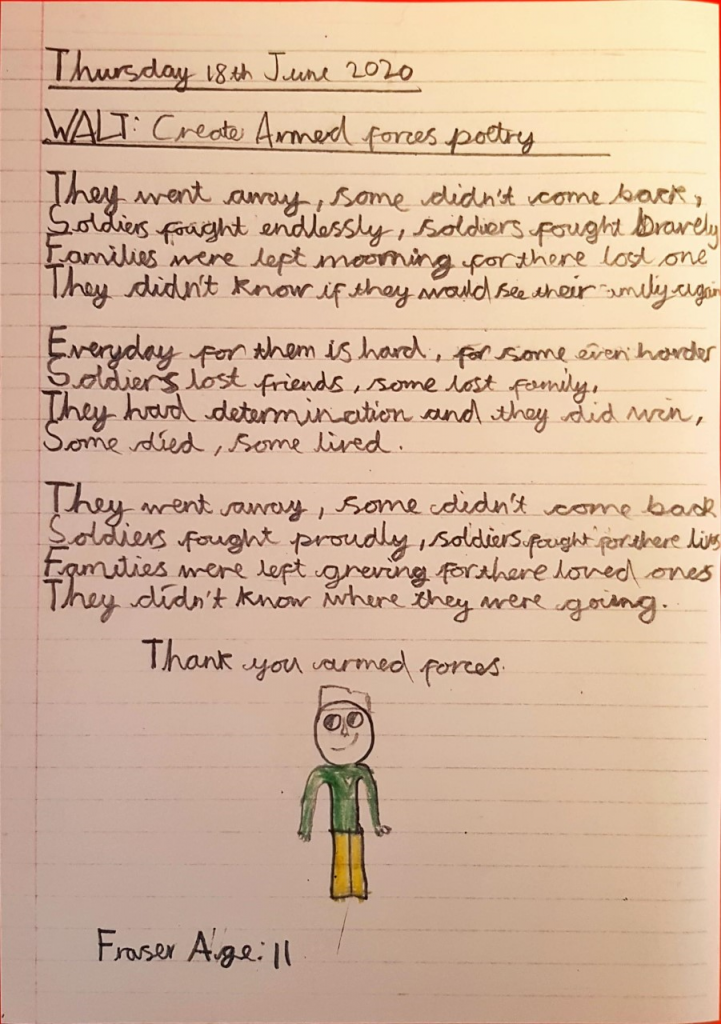 Thursday 18th June 2020
WALT: Create Armed forces poetry
They went away, some didn't come back,
Soldiers fought endlessly, soldiers fought bravely
Families were left moorning for there lost one
They didn't know if they would see their again
Everyday for them is hard, for some even harder
Soldiers lost friends, some lost family,
They had determination and they did win,
Some died, some lived.
They went away, some didn't come back
Soldiers fought proudly, soldiers fought for there
Families were left greving for there loved ones
They didn't know where they were going.
Thank you armed forces.
Fraser Age: 11